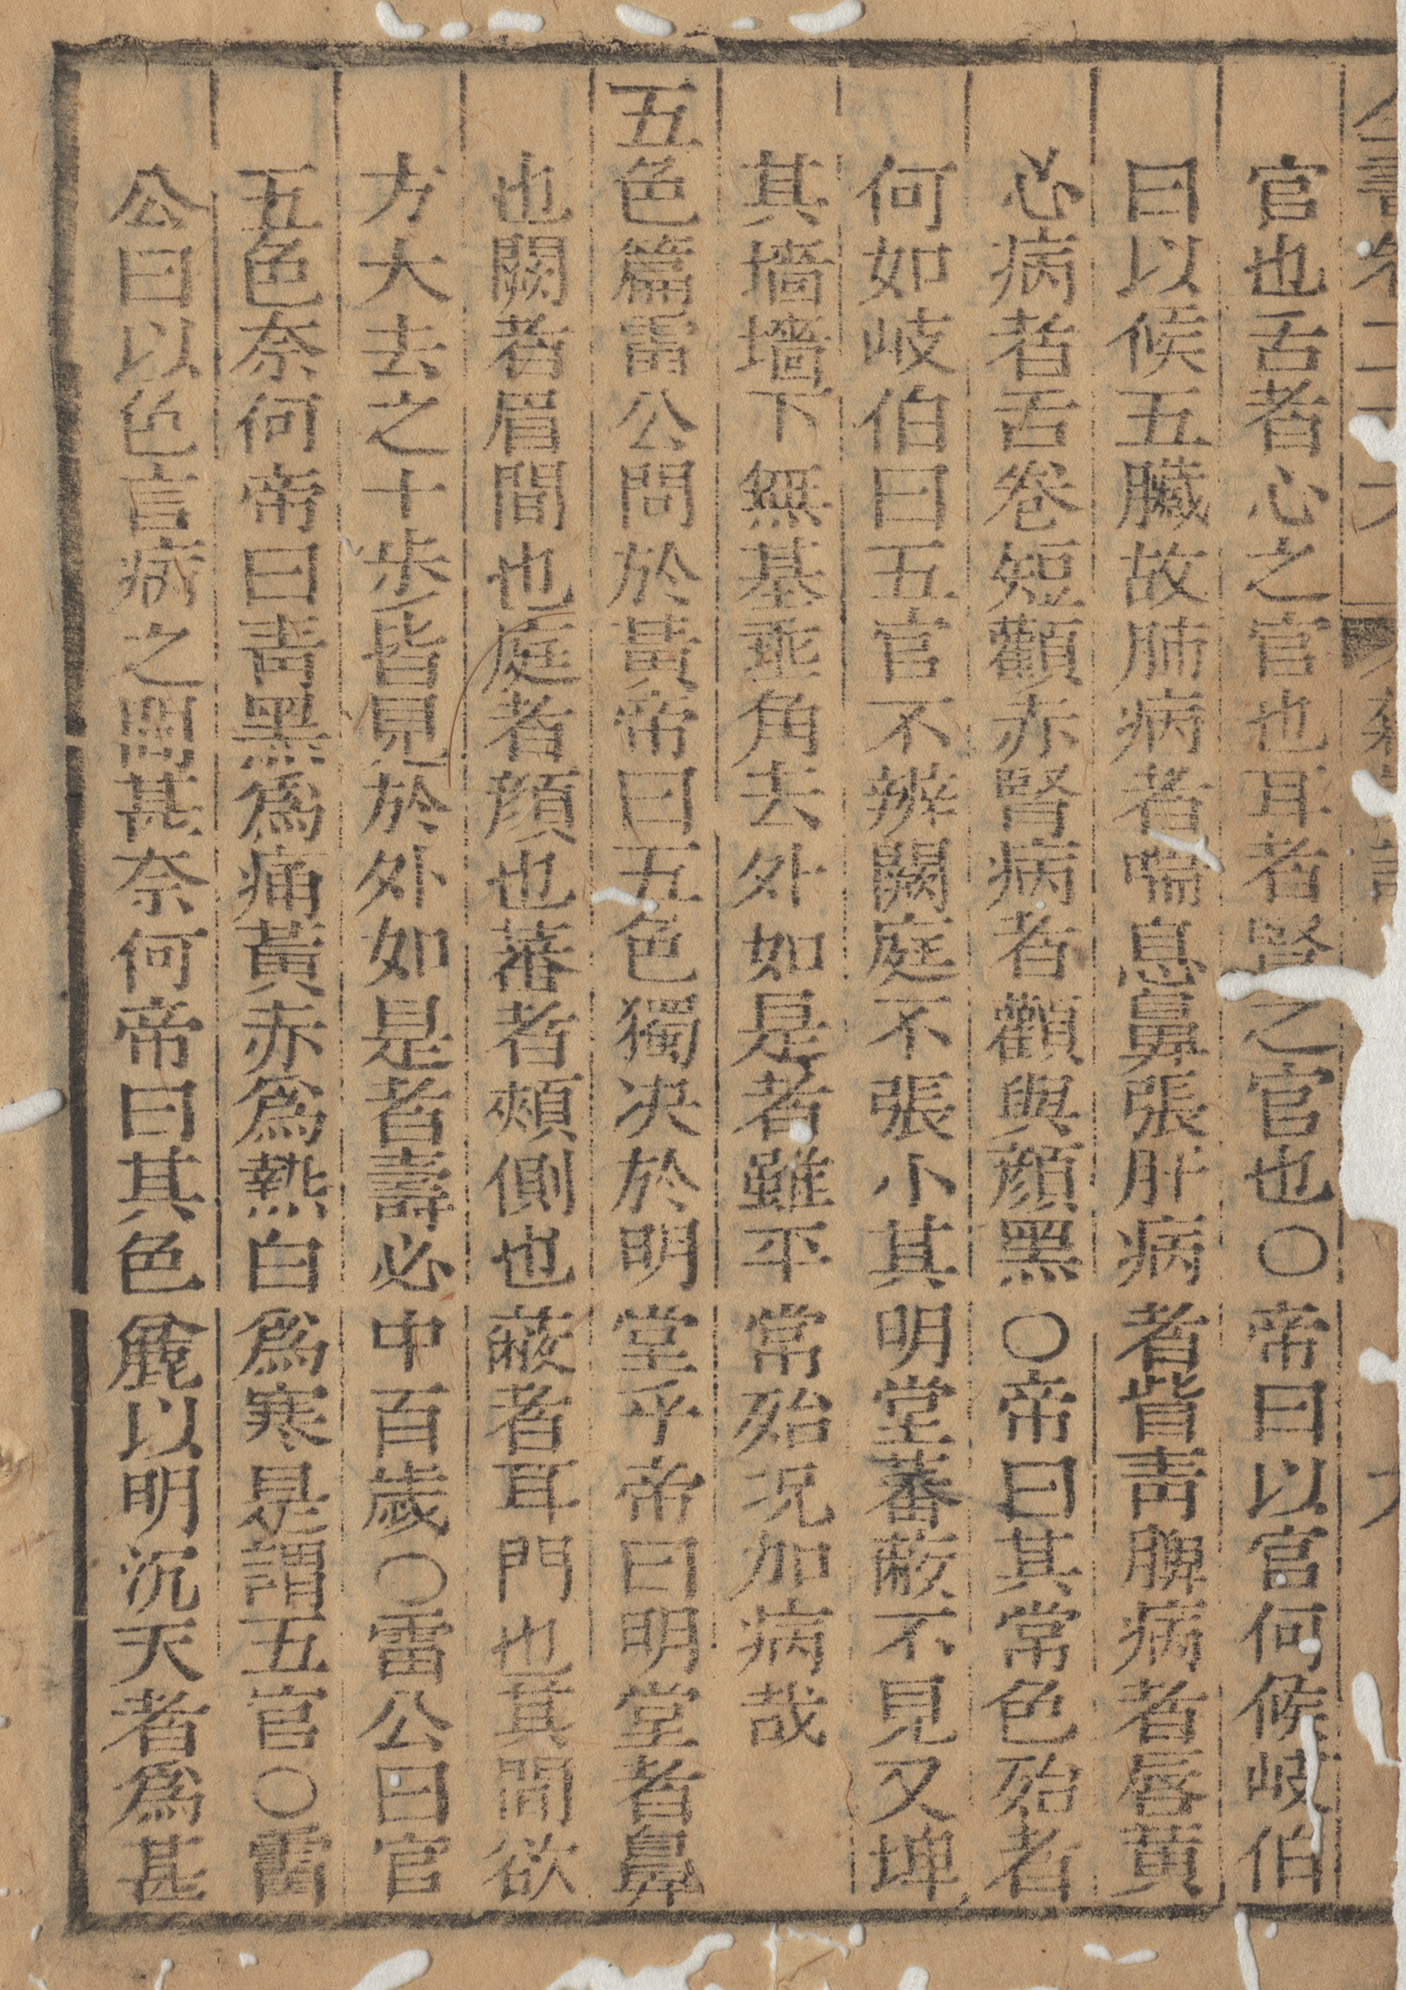 官也舌者心之官也耳者腎之官也○帝曰以官何候岐伯
曰以候五臟故肺病者喘息鼻張肝病者眥靑脾病者唇黄
心病者舌卷短顴赤腎病者顴與顔黑○帝曰其常色殆者
何如岐伯曰五官不辨闕庭不張小其明堂蕃蔽不見又埤
其墻墻下無基埀角去外如是者雖平常殆况加病哉
五色篇雷公問於黃帝曰五色獨决於明堂乎帝曰明堂者鼻
也闕者眉間也庭者顔也蕃者頰側也蔽者耳門也其間欲
方大去之十步皆見於外如是者壽必中百歲○雷公曰官
五色奈何帝曰靑黑爲痛黃赤爲熱白爲寒是謂五官○雷
公曰以色言病之間甚奈何帝曰其色麄以明沉夭者爲甚